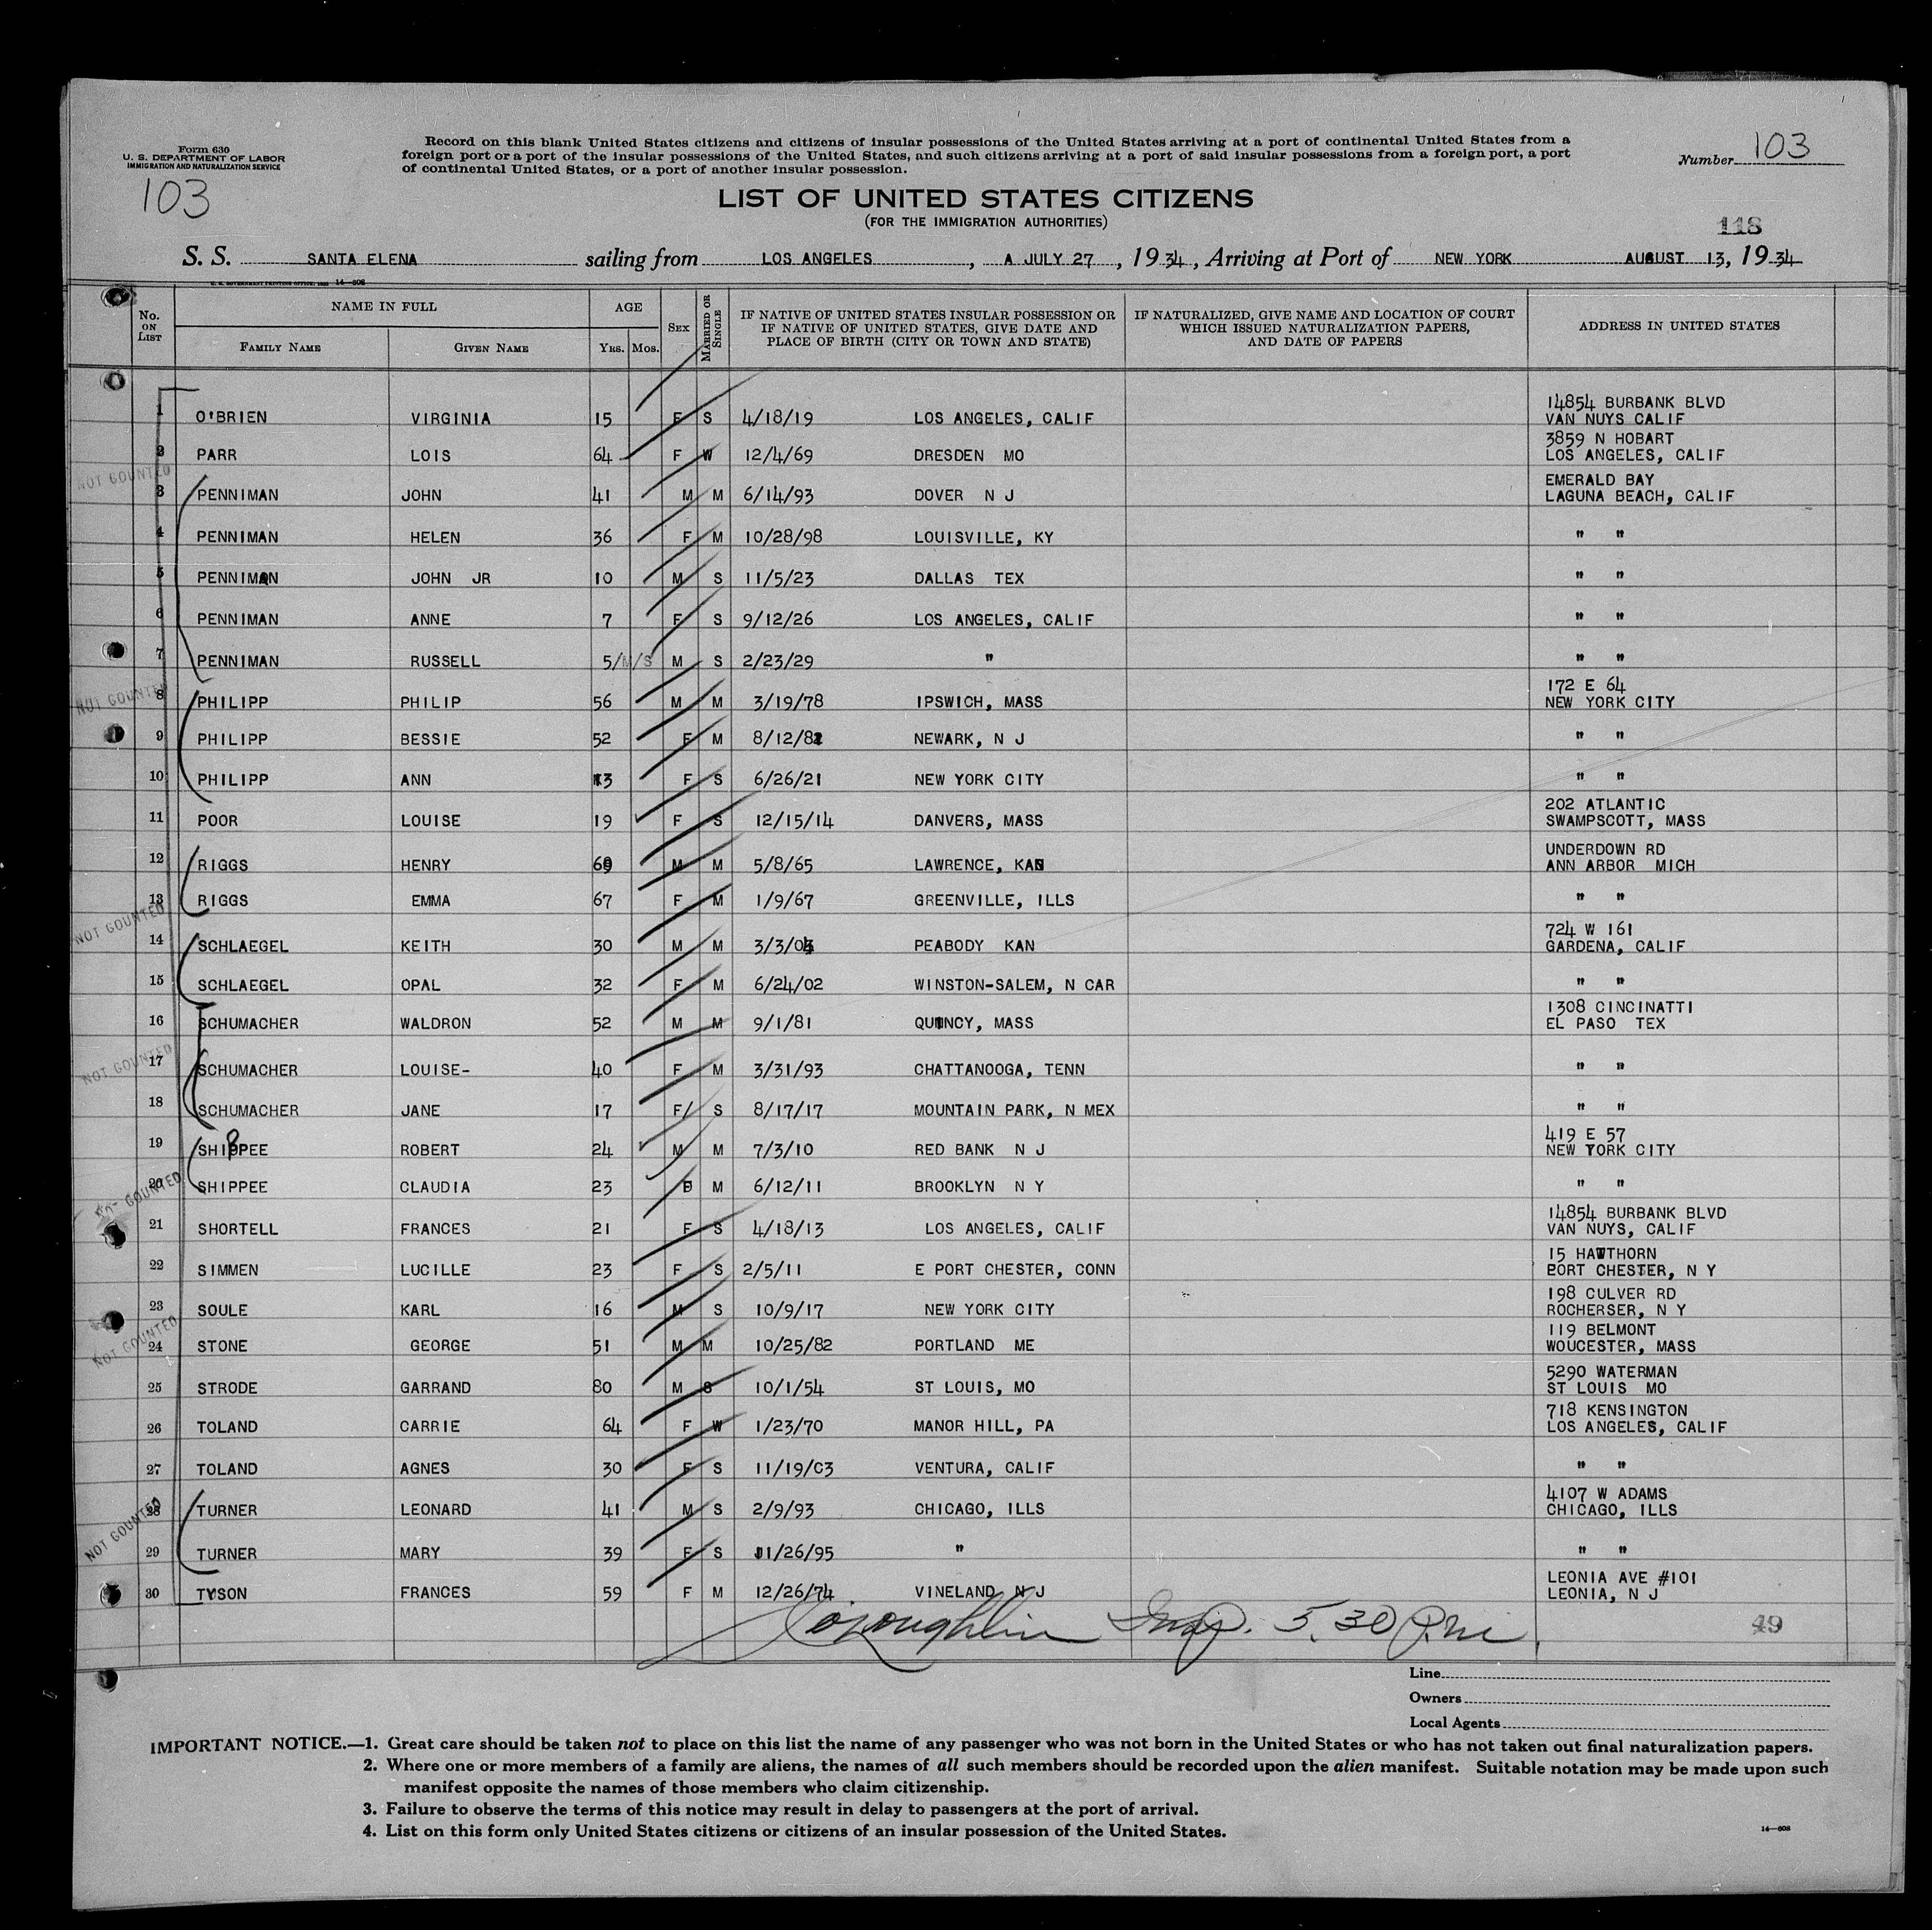 Form 630
U. S. DEPARTMENT OF LABOR
IMMIGRATION AND NATURALIZATION SERVICE
103
Record on this blank United States citizens and citizens of insular possessions of the United States arriving at a port of continental United States from a
foreign port or a port of the insular possessions of the United States, and such citizens arriving at a port of said insular possessions from a foreign port, a port
of continental United States, or a port of another insular possession.
Number 103
LIST OF UNITED STATES CITIZENS
(FOR THE IMMIGRATION AUTHORITIES)
118
S. S. SANTA ELENA sailing from LOS ANGELES, A JULY 27, 1934, Arriving at Port of NEW YORK AUGUST 13, 1934
No. ON LIST NAME IN FULL AGE SEX MARRIED OR SINGLE IF NATIVE OF UNITED STATES INSULAR POSSESSION OR IF NATIVE OF UNITED STATES, GIVE DATE AND PLACE OF BIRTH (CITY OR TOWN AND STATE) IF NATURALIZED, GIVE NAME AND LOCATION OF COURT WHICH ISSUED NATURALIZATION PAPERS, AND DATE OF PAPERS ADDRESS IN UNITED STATES
FAMILY NAME GIVEN NAME YRS. MOS.
1 O'BRIEN VIRGINIA 15 F S 4/18/19 LOS ANGELES, CALIF 14854 BURBANK BLVD VAN NUYS CALIF
2 PARR LOIS 64 F W 12/4/69 DRESDEN MO 3859 N HOBART LOS ANGELES, CALIF
NOT COUNTED
3 PENNIMAN JOHN 41 M M 6/14/93 DOVER N J EMERALD BAY LAGUNA BEACH, CALIF
4 PENNIMAN HELEN 36 F M 10/28/98 LOUISVILLE, KY " "
5 PENNIMAN JOHN JR 10 M S 11/5/23 DALLAS TEX " "
6 PENNIMAN ANNE 7 F S 9/12/26 LOS ANGELES, CALIF " "
7 PENNIMAN RUSSELL 5/M/S M S 2/23/29 " " "
NOT COUNTED
8 PHILIPP PHILIP 56 M M 3/19/78 IPSWICH, MASS 172 E 64 NEW YORK CITY
9 PHILIPP BESSIE 52 F M 8/12/82 NEWARK, N J " "
10 PHILIPP ANN 13 F S 6/26/21 NEW YORK CITY " "
11 POOR LOUISE 19 F S 12/15/14 DANVERS, MASS 202 ATLANTIC SWAMPSCOTT, MASS
12 RIGGS HENRY 69 M M 5/8/65 LAWRENCE, KAN UNDERDOWN RD ANN ARBOR MICH
13 RIGGS EMMA 67 F M 1/9/67 GREENVILLE, ILLS " "
NOT COUNTED
14 SCHLAEGEL KEITH 30 M M 3/3/04 PEABODY KAN 724 W 161 GARDENA, CALIF
15 SCHLAEGEL OPAL 32 F M 6/24/02 WINSTON-SALEM, N CAR " "
16 SCHUMACHER WALDRON 52 M M 9/1/81 QUINCY, MASS 1308 CINCINATTI EL PASO TEX
NOT COUNTED
17 SCHUMACHER LOUISE- 40 F M 3/31/93 CHATTANOOGA, TENN " "
18 SCHUMACHER JANE 17 F/ S 8/17/17 MOUNTAIN PARK, N MEX " "
19 SHIPPEE ROBERT 24 M M 7/3/10 RED BANK N J 419 E 57 NEW YORK CITY
20 SHIPPEE CLAUDIA 23 F M 6/12/11 BROOKLYN N Y " "
NOT COUNTED
21 SHORTELL FRANCES 21 F S 4/18/13 LOS ANGELES, CALIF 14854 BURBANK BLVD VAN NUYS, CALIF
22 SIMMEN LUCILLE 23 F S 2/5/11 E PORT CHESTER, CONN 15 HAWTHORN PORT CHESTER, N Y
23 SOULE KARL 16 M S 10/9/17 NEW YORK CITY 198 CULVER RD ROCHERSER, N Y
NOT COUNTED
24 STONE GEORGE 51 M M 10/25/82 PORTLAND ME 119 BELMONT WOUCESTER, MASS
25 STRODE GARRAND 80 M S 10/1/54 ST LOUIS, MO 5290 WATERMAN ST LOUIS MO
26 TOLAND CARRIE 64 F W 1/23/70 MANOR HILL, PA 718 KENSINGTON LOS ANGELES, CALIF
27 TOLAND AGNES 30 F S 11/19/03 VENTURA, CALIF " "
28 TURNER LEONARD 41 M S 2/9/93 CHICAGO, ILLS 4107 W ADAMS CHICAGO, ILLS
NOT COUNTED
29 TURNER MARY 39 F S 11/26/95 " " "
30 TYSON FRANCES 59 F M 12/26/74 VINELAND N J LEONIA AVE #101 LEONIA, N J
O'Loughlin Insp. 5.30 P.M.
49
Line
Owners
Local Agents
IMPORTANT NOTICE.—1. Great care should be taken not to place on this list the name of any passenger who was not born in the United States or who has not taken out final naturalization papers.
2. Where one or more members of a family are aliens, the names of all such members should be recorded upon the alien manifest. Suitable notation may be made upon such
manifest opposite the names of those members who claim citizenship.
3. Failure to observe the terms of this notice may result in delay to passengers at the port of arrival.
4. List on this form only United States citizens or citizens of an insular possession of the United States.
14—608